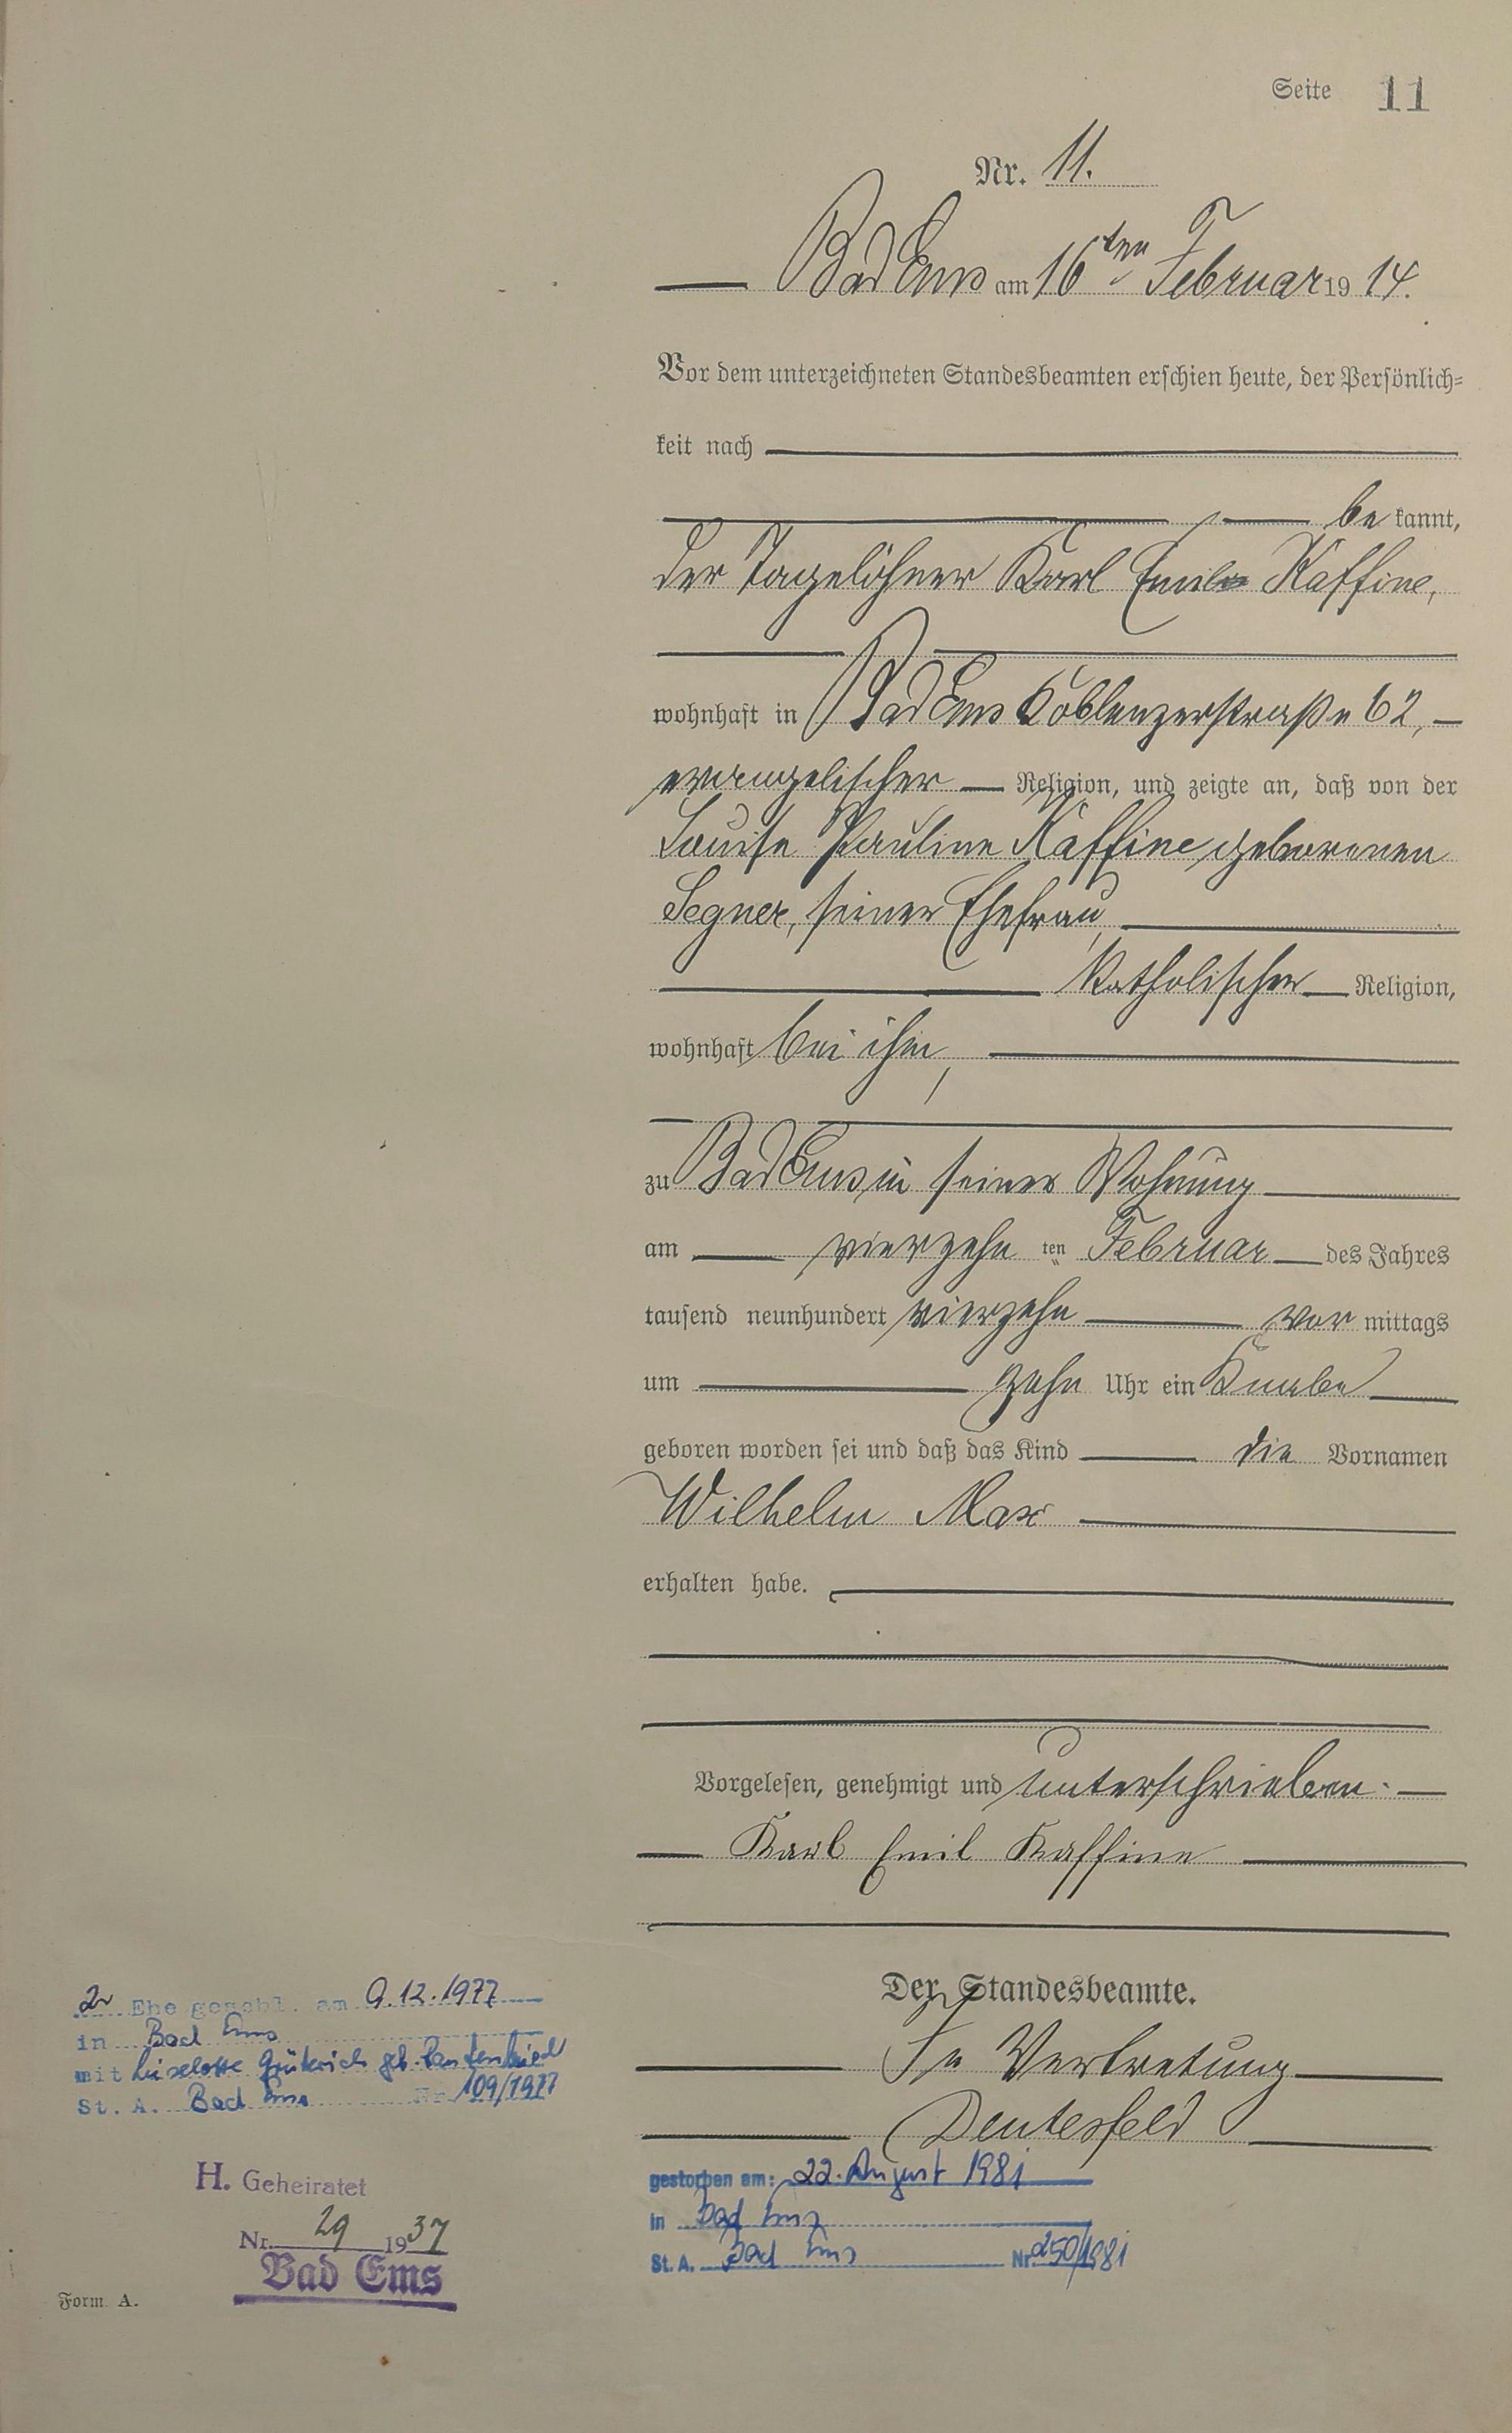 Seite 11
Nr. 11.
Bad Ems am 16ten Februar 1914.
Vor dem unterzeichneten Standesbeamten erschien heute, der Persönlich=
keit nach
be kannt,
der Tagelöhner Karl Emil Kaffine,
wohnhaft in Bad Ems Koblenzerstraße 62,
evangelischer Religion, und zeigte an, daß von der
Louise Pauline Kaffine geborenen
Segner, seiner Ehefrau,
katholischer Religion,
wohnhaft bei ihm,
zu Bad Ems in seiner Wohnung
am vierzehn ten Februar des Jahres
tausend neunhundert vierzehn vor mittags
um zehn Uhr ein Knabe
geboren worden sei und daß das Kind die Vornamen
Wilhelm Max
erhalten habe.
Vorgelesen, genehmigt und unterschrieben.
Karl Emil Kaffine
Der Standesbeamte.
In Vertretung
Deutesfeld
2. Ehe geschl. am 9.12.1977
in Bad Ems
mit Liselotte geb.
St. A. Bad Ems Nr. 109/1977
H. Geheiratet
Nr. 29 1937
Bad Ems
gestorben am: 22. August 1981
in Bad Ems
St. A. Bad Ems Nr 250/1981
Form. A.